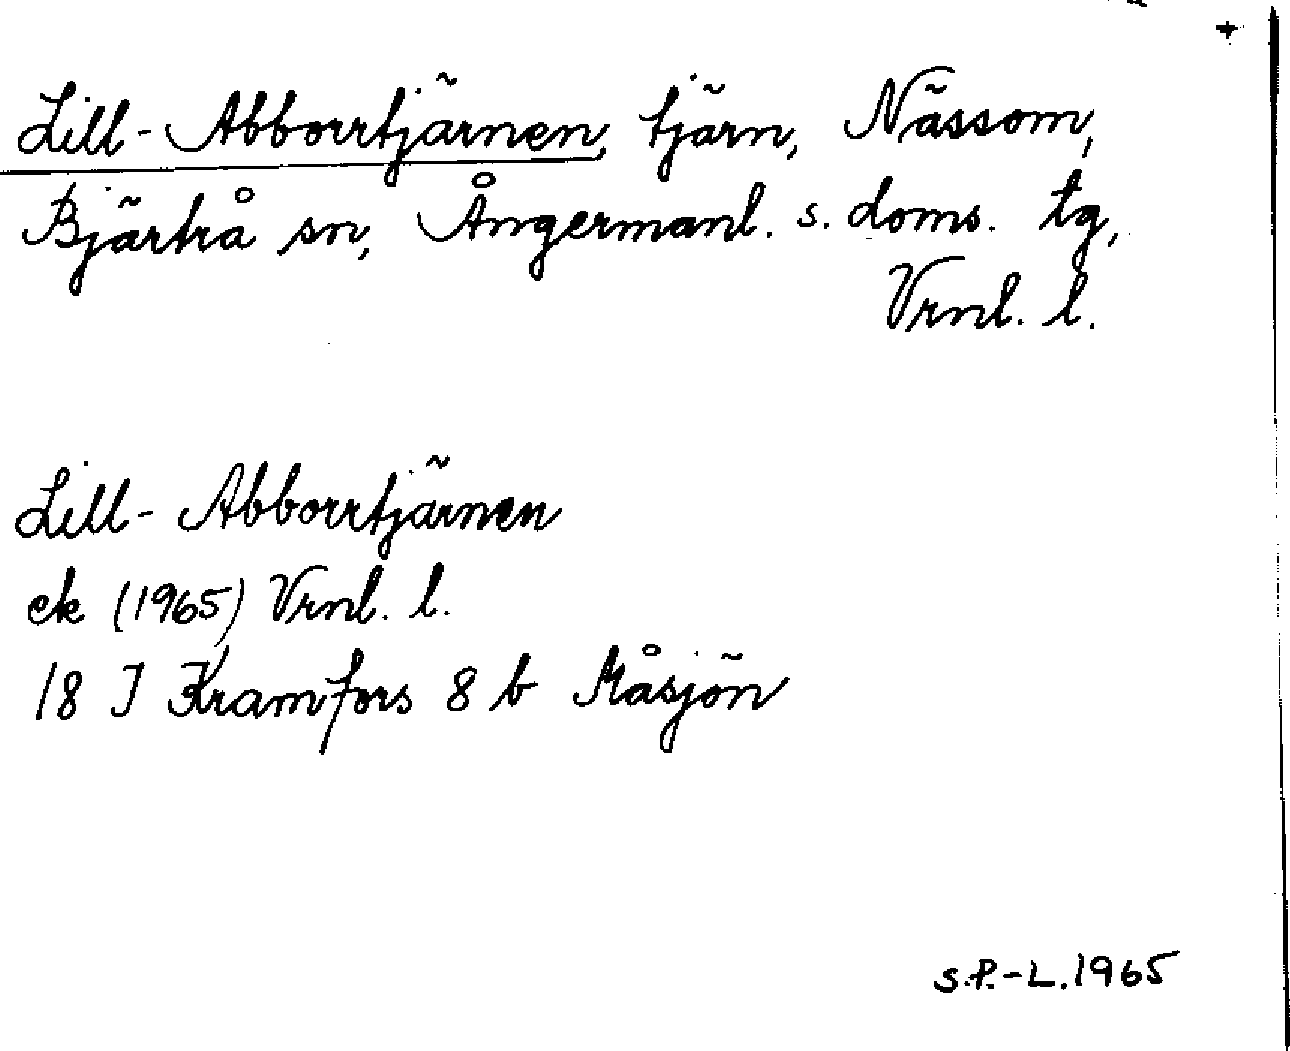 Lill-Abborrtjärnen, tjärn, Nässom,
Bjärtrå sn, Ångermanl. s. doms. tg,
Vrnl. l.
Lill-Abborrtjärnen
ek (1965) Vrnl. l.
18 I Kramfors 8 b Måsjön
S.P.-L. 1965